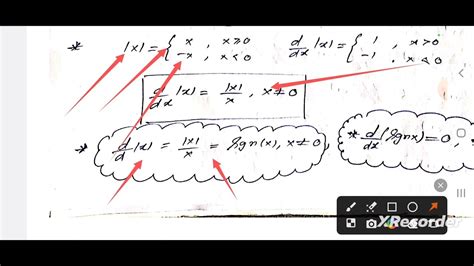 * |x| = { x , x ≥ 0 d/dx |x| = { 1 , x > 0
-x , x < 0 -1 , x < 0
d/dx |x| = |x|/x , x ≠ 0
* d/d |x| = |x|/x = sgn(x), x ≠ 0 * d/dx (sgn x) = 0,
XRecorder